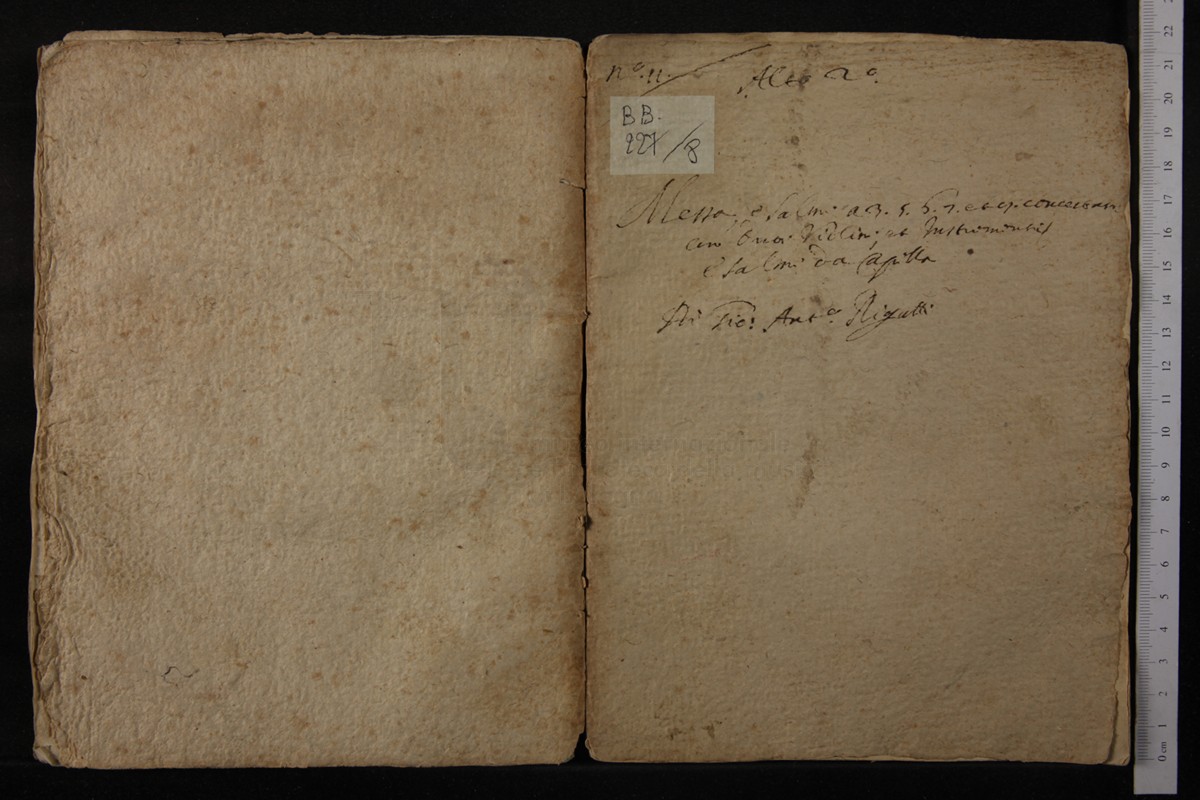 nº. 11.
Alto 2º.
BB.
227/8
Messa, è Salmi a 3. 5. 6. 7. et 9. concertati
con duoi Violini et Instromenti
è Salmi da Capella
Di Gio: Antº. Rigatti
22
21
20
19
18
17
16
15
14
13
12
11
10
9
8
7
6
5
4
3
2
1
0 cm